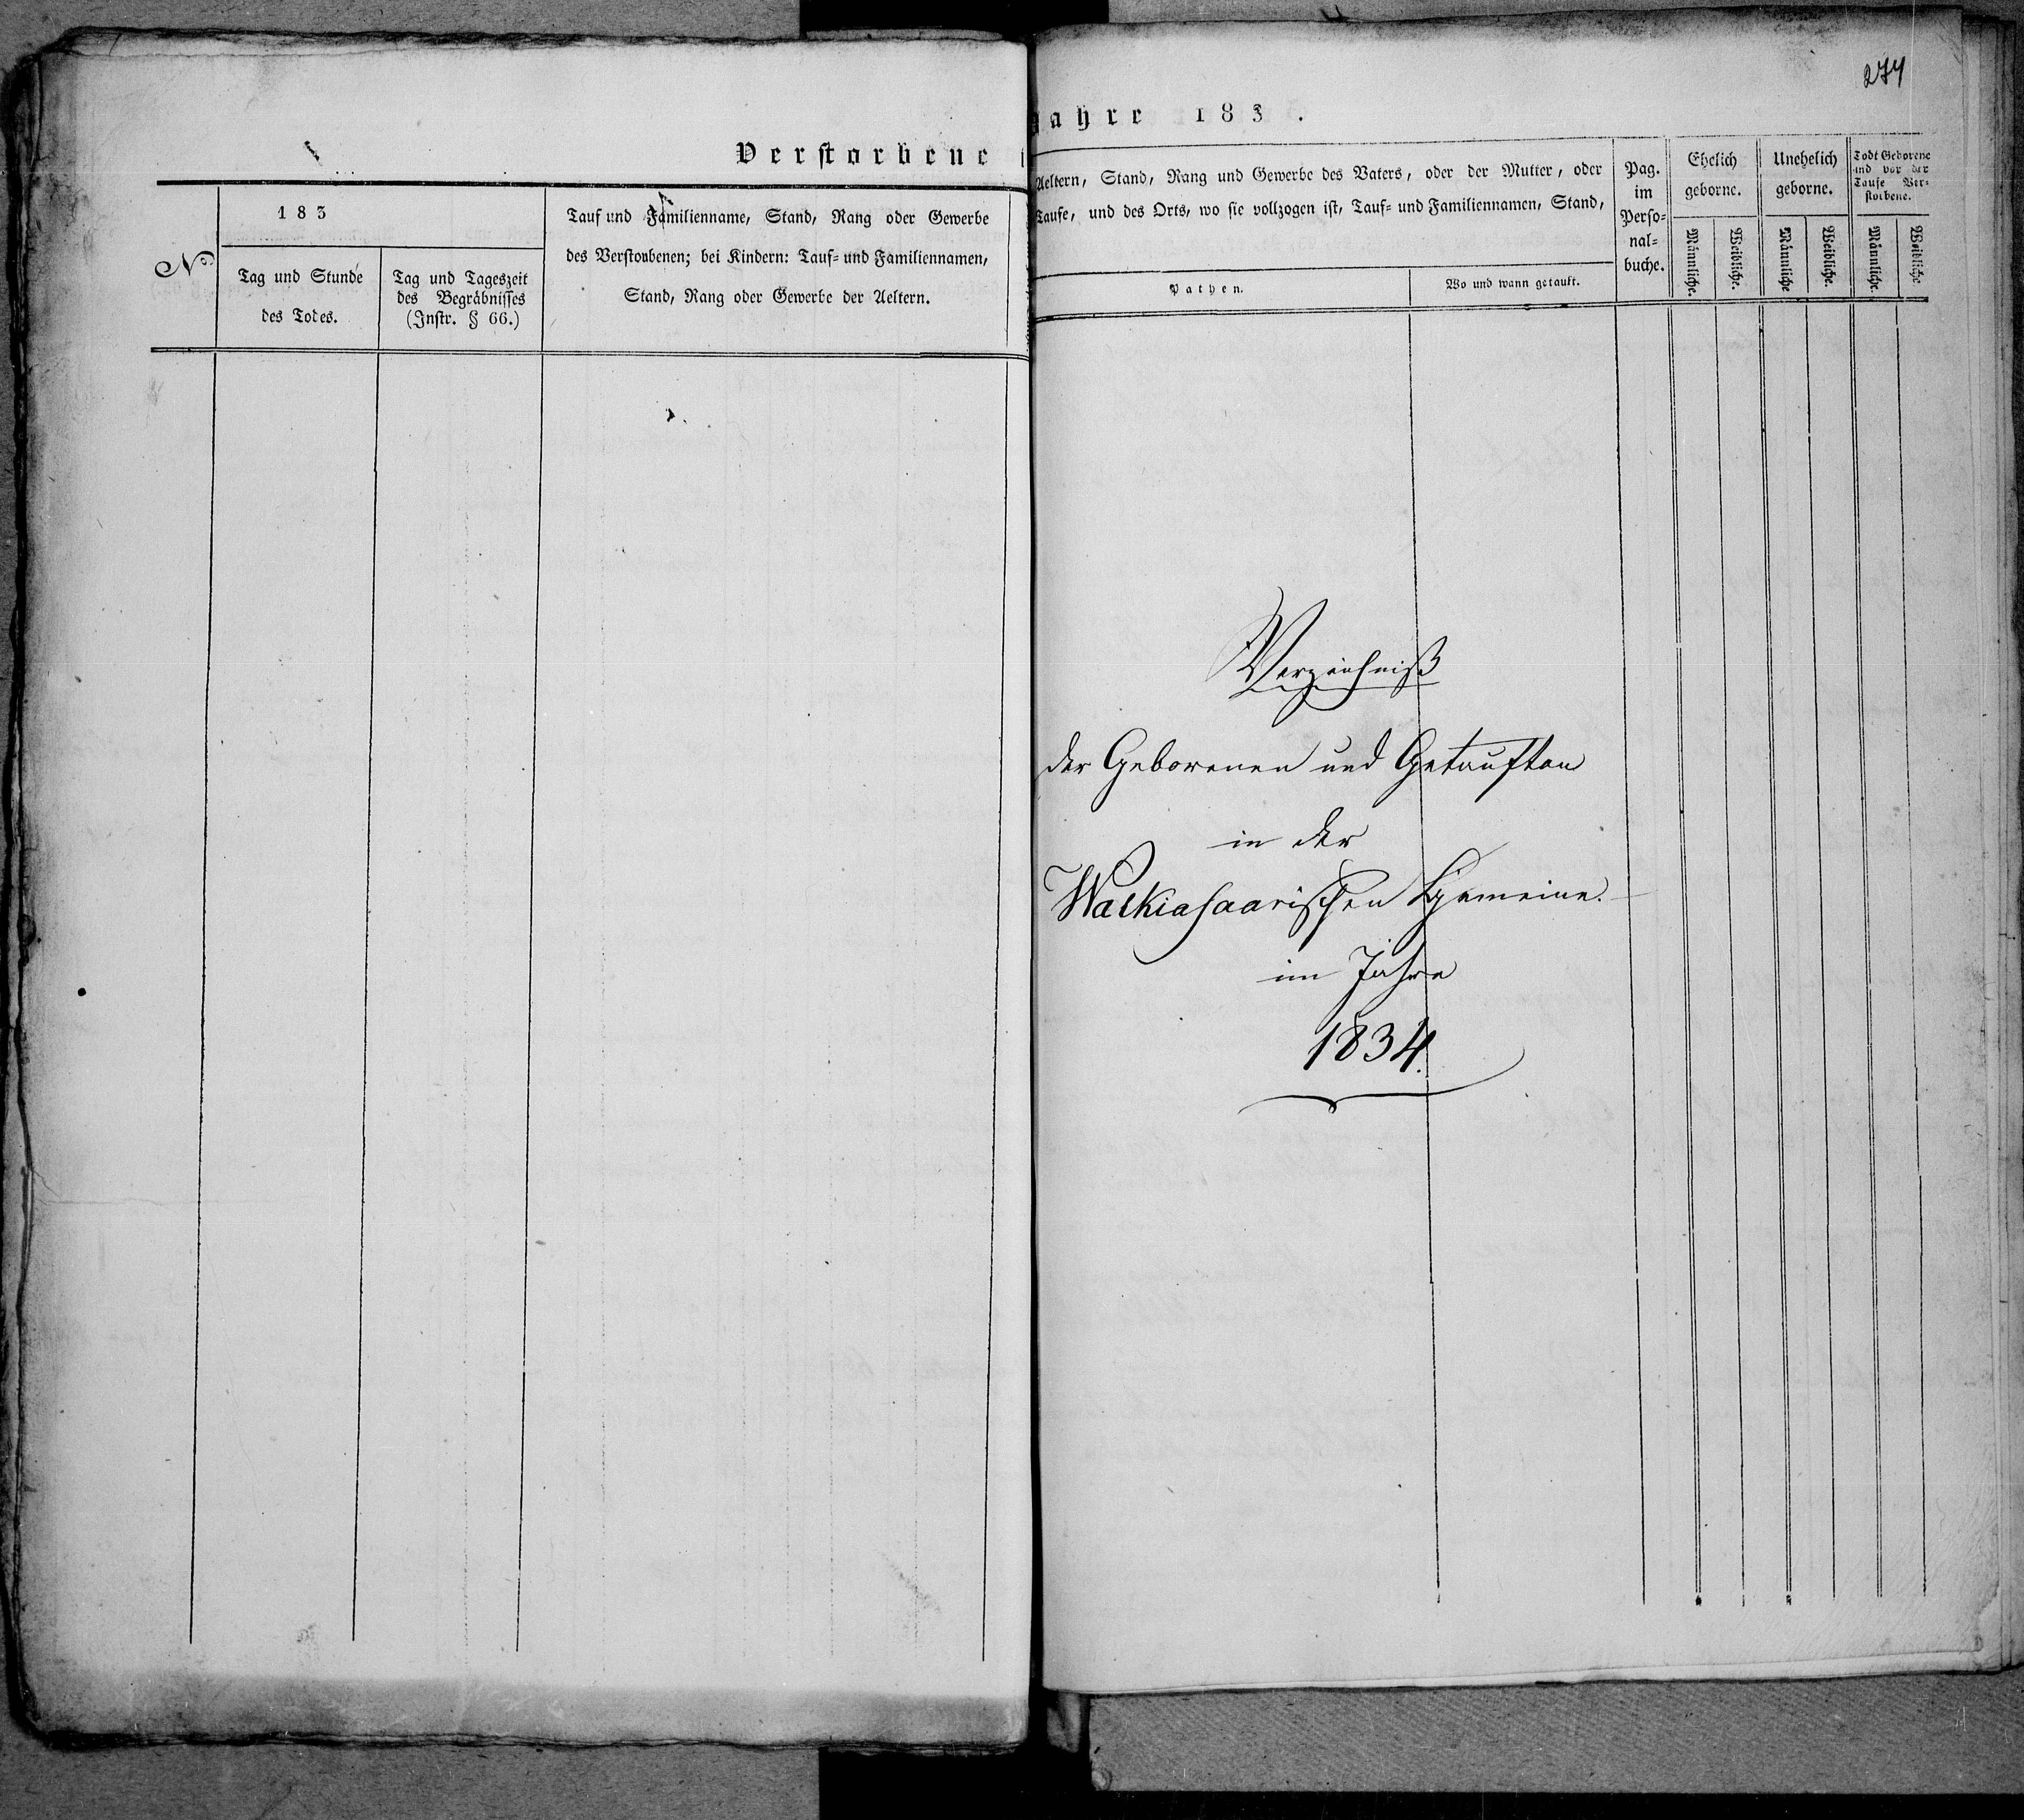 Verstorbene
No.
183
Tag und Stunde
des Todes.
Tag und Tageszeit
des Begräbnisses
(Instr. § 66.)
Tauf und Familienname, Stand, Rang oder Gewerbe
des Verstorbenen; bei Kindern: Tauf- und Familiennamen,
Stand, Rang oder Gewerbe der Aeltern.
274
Jahre 183 .
Aeltern, Stand, Rang und Gewerbe des Vaters, oder der Mutter, oder
Taufe, und des Orts, wo sie vollzogen ist, Tauf- und Familiennamen, Stand,
Pathen.
Wo und wann getauft.
Pag.
im
Perso-
nal-
buche.
Ehelich
geborne.
Männliche.
Weibliche.
Unehelich
geborne.
Männliche
Weibliche.
Todt Geborene
und vor der
Taufe Ver-
storbene.
Männliche.
Weibliche
Verzeichniß
der Geborenen und Getauften
in der
Walkiasaarischen Gemeine.
im Jahre
1834.